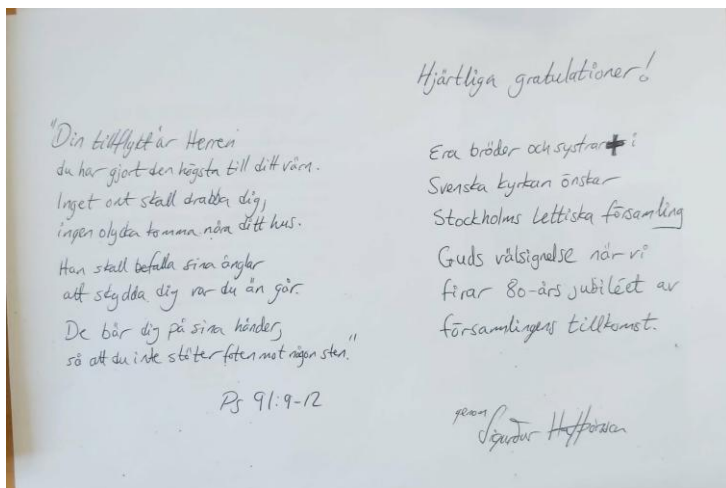 "Din tillflykt är Herren
du har gjort den högsta till ditt värn.
Inget ont skall drabba dig,
ingen olycka komma nära ditt hus.
Han skall befalla sina änglar
att skydda dig var du än går.
De bär dig på sina händer,
så att du inte stöter foten mot någon sten."
Ps 91:9-12
Hjärtliga gratulationer!
Era bröder och systrar i
Svenska kyrkan önskar
Stockholms lettiska församling
Guds välsignelse när vi
firar 80-års jubiléet av
församlingens tillkomst.
genom
Sigurdur